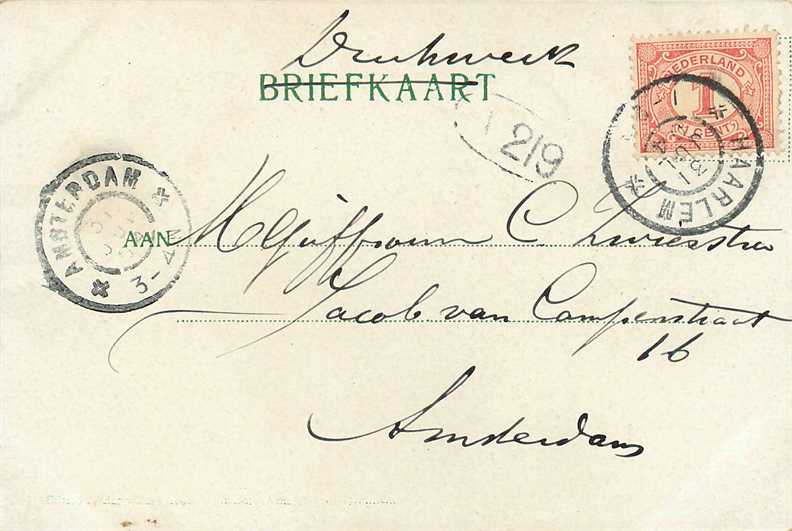 Drukwerk
BRIEFKAART
NEDERLAND
1
CENT
HAARLEM
219
AMSTERDAM
3-4
AAN Mejuffrouw C.
Jacob van Campenstraat
16
Amsterdam